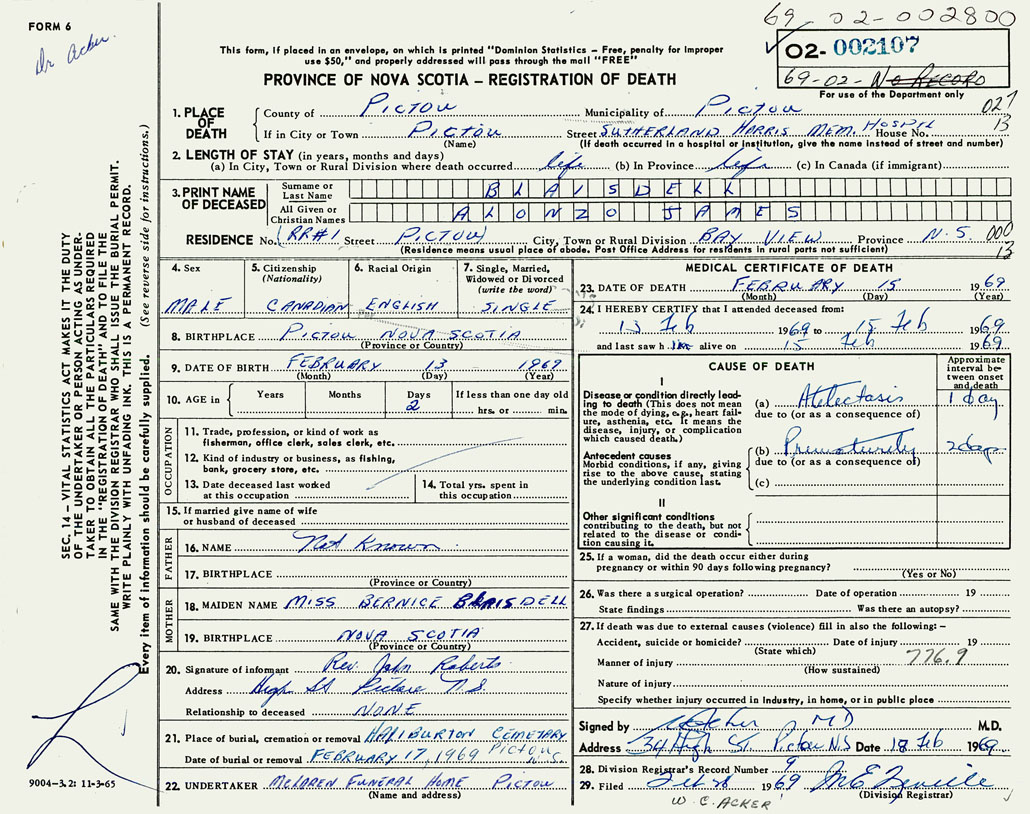 FORM 6
Dr Acker.
69-02-002800
02-002107
69-02-No RECORD
For use of the Department only
This form, if placed in an envelope, on which is printed "Dominion Statistics – Free, penalty for improper
use $50," and properly addressed will pass through the mail "FREE"
PROVINCE OF NOVA SCOTIA – REGISTRATION OF DEATH
SEC. 14 – VITAL STATISTICS ACT MAKES IT THE DUTY
OF THE UNDERTAKER OR PERSON ACTING AS UNDER-
TAKER TO OBTAIN ALL THE PARTICULARS REQUIRED
IN THE "REGISTRATION OF DEATH" AND TO FILE THE
SAME WITH THE DIVISION REGISTRAR WHO SHALL ISSUE THE BURIAL PERMIT.
WRITE PLAINLY WITH UNFADING INK. THIS IS A PERMANENT RECORD.
Every item of information should be carefully supplied. (See reverse side for instructions.)
1. PLACE OF DEATH County of PICTOU Municipality of PICTOU 027
If in City or Town PICTOU Street SUTHERLAND HARRIS MEM. HOSPEL House No. 13
(Name) (If death occurred in a hospital or institution, give the name instead of street and number)
2. LENGTH OF STAY (in years, months and days)
(a) In City, Town or Rural Division where death occurred life (b) In Province life (c) In Canada (if immigrant)
3. PRINT NAME OF DECEASED Surname or Last Name BLAISDELL
All Given or Christian Names ALONZO JAMES
RESIDENCE No. (RR#1 Street PICTOU) City, Town or Rural Division BAY VIEW Province N.S. 000
(Residence means usual place of abode. Post Office Address for residents in rural parts not sufficient) 13
4. Sex 5. Citizenship (Nationality) 6. Racial Origin 7. Single, Married, Widowed or Divorced (write the word)
MALE CANADIAN ENGLISH SINGLE
8. BIRTHPLACE PICTOU NOVA SCOTIA
(Province or Country)
9. DATE OF BIRTH FEBRUARY 13 1969
(Month) (Day) (Year)
10. AGE in Years Months Days If less than one day old
2 hrs. or min.
OCCUPATION
11. Trade, profession, or kind of work as
fisherman, office clerk, sales clerk, etc.
12. Kind of industry or business, as fishing,
bank, grocery store, etc.
13. Date deceased last worked at this occupation 14. Total yrs. spent in this occupation
15. If married give name of wife
or husband of deceased
FATHER
16. NAME Not Known
17. BIRTHPLACE
(Province or Country)
MOTHER
18. MAIDEN NAME MISS BERNICE BLAISDELL
19. BIRTHPLACE NOVA SCOTIA
(Province or Country)
20. Signature of informant Rev. John Roberts
Address High St Pictou N.S.
Relationship to deceased NONE
21. Place of burial, cremation or removal HALIBURTON CEMETARY
Date of burial or removal FEBRUARY 17, 1969 PICTOU N.S.
22. UNDERTAKER McLAREN FUNERAL HOME PICTOU
(Name and address)
9004-3.2: 11-3-65
MEDICAL CERTIFICATE OF DEATH
23. DATE OF DEATH FEBRUARY 15 1969
(Month) (Day) (Year)
24. I HEREBY CERTIFY that I attended deceased from:
13 Feb 1969 to 15 Feb 1969
and last saw him alive on 15 Feb 1969
CAUSE OF DEATH
Approximate interval between onset and death
I
Disease or condition directly lead-
ing to death (This does not mean
the mode of dying, e.g., heart fail-
ure, asthenia, etc. It means the
disease, injury, or complication
which caused death.)
(a) Atelectasis 1 day
due to (or as a consequence of)
Antecedent causes
Morbid conditions, if any, giving
rise to the above cause, stating
the underlying condition last.
(b) Prematurity 2 days
due to (or as a consequence of)
(c)
II
Other significant conditions
contributing to the death, but not
related to the disease or condi-
tion causing it.
25. If a woman, did the death occur either during
pregnancy or within 90 days following pregnancy?
(Yes or No)
26. Was there a surgical operation? Date of operation 19
State findings Was there an autopsy?
27. If death was due to external causes (violence) fill in also the following: –
Accident, suicide or homicide? Date of injury 19
(State which)
Manner of injury 776.9
(How sustained)
Nature of injury
Specify whether injury occurred in industry, in home, or in public place
Signed by Acker MD M.D.
Address 34 High St. Pictou N.S Date 18 Feb 1969
28. Division Registrar's Record Number 9
29. Filed 1969
(Division Registrar)
W. C. ACKER